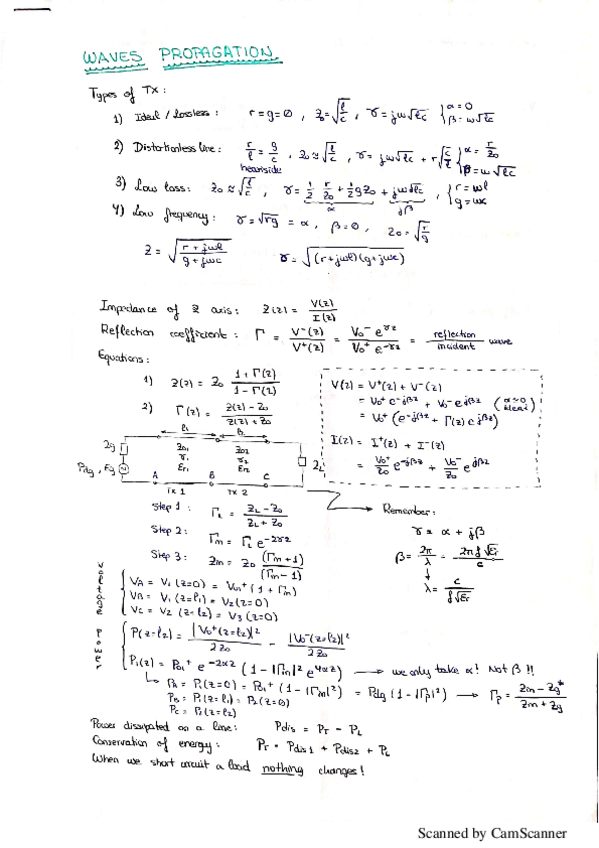 WAVES PROPAGATION
Types of TX:
1) Ideal / Lossless: r = g = 0, Z0 = √(l/c), γ = jω√lc {α = 0 β = ω√lc
2) Distortionless line: r/l = g/c, Z0 ≈ √(l/c), γ = jω√lc + r√(c/l) {α = r/Z0 β = ω√lc
heaviside
3) Low loss: Z0 ≈ √(l/c), γ = 1/2 r/Z0 + 1/2 g Z0 + jω√lc, {r = ωl g = ωc
α jβ
4) Low frequency: γ = √rg = α, β = 0, Z0 = √(r/g)
Z = √((r + jωl)/(g + jωc)) γ = √((r + jωl)(g + jωc))
Impedance of Z axis: Z(z) = V(z)/I(z)
Reflection coefficient: Γ = V⁻(z)/V⁺(z) = V0⁻ e^γz / V0⁺ e^-γz = reflection/incident wave
Equations:
1) Z(z) = Z0 (1 + Γ(z))/(1 - Γ(z))
2) Γ(z) = (Z(z) - Z0)/(Z(z) + Z0)
V(z) = V⁺(z) + V⁻(z)
= V0⁺ e^-jβz + V0⁻ e^jβz (α=0 ideal)
= V0⁺ (e^-jβz + Γ(z) e^jβz)
I(z) = I⁺(z) + I⁻(z)
= V0⁺/Z0 e^-jβz + V0⁻/Z0 e^jβz
l1 l2
Zg Z01 Z02 ZL
Pdg, Eg γ1 γ2
εr1 εr2
A B C
TX 1 TX 2
Step 1: ΓL = (ZL - Z0)/(ZL + Z0)
Step 2: Γin = ΓL e^-2γz
Step 3: Zin = Z0 (Γin + 1)/(Γin - 1)
Remember:
γ = α + jβ
β = 2π/λ = 2πf√εr/c
λ = c/(f√εr)
Voltage
VA = V1 (z=0) = Vin⁺ (1 + Γin)
VB = V1 (z=l1) = V2 (z=0)
VC = V2 (z=l2) = V3 (z=0)
Power
P(z=l2) = |V0⁺(z=l2)|²/2Z0 - |V0⁻(z=l2)|²/2Z0
P1(z) = PA⁺ e^-2αz (1 - |Γin|² e^4αz) → we only take α! Not β!!
PA = P1(z=0) = PA⁺ (1 - |Γin|²) = Pdg (1 - |Γp|²) → Γp = (Zin - Zg*)/(Zin + Zg)
PB = P1(z=l1) = P2(z=0)
PC = P2(z=l2)
Power dissipated on a line: Pdis = PT - PL
Conservation of energy: PT = Pdis1 + Pdis2 + PL
When we short circuit a load nothing changes!
Scanned by CamScanner